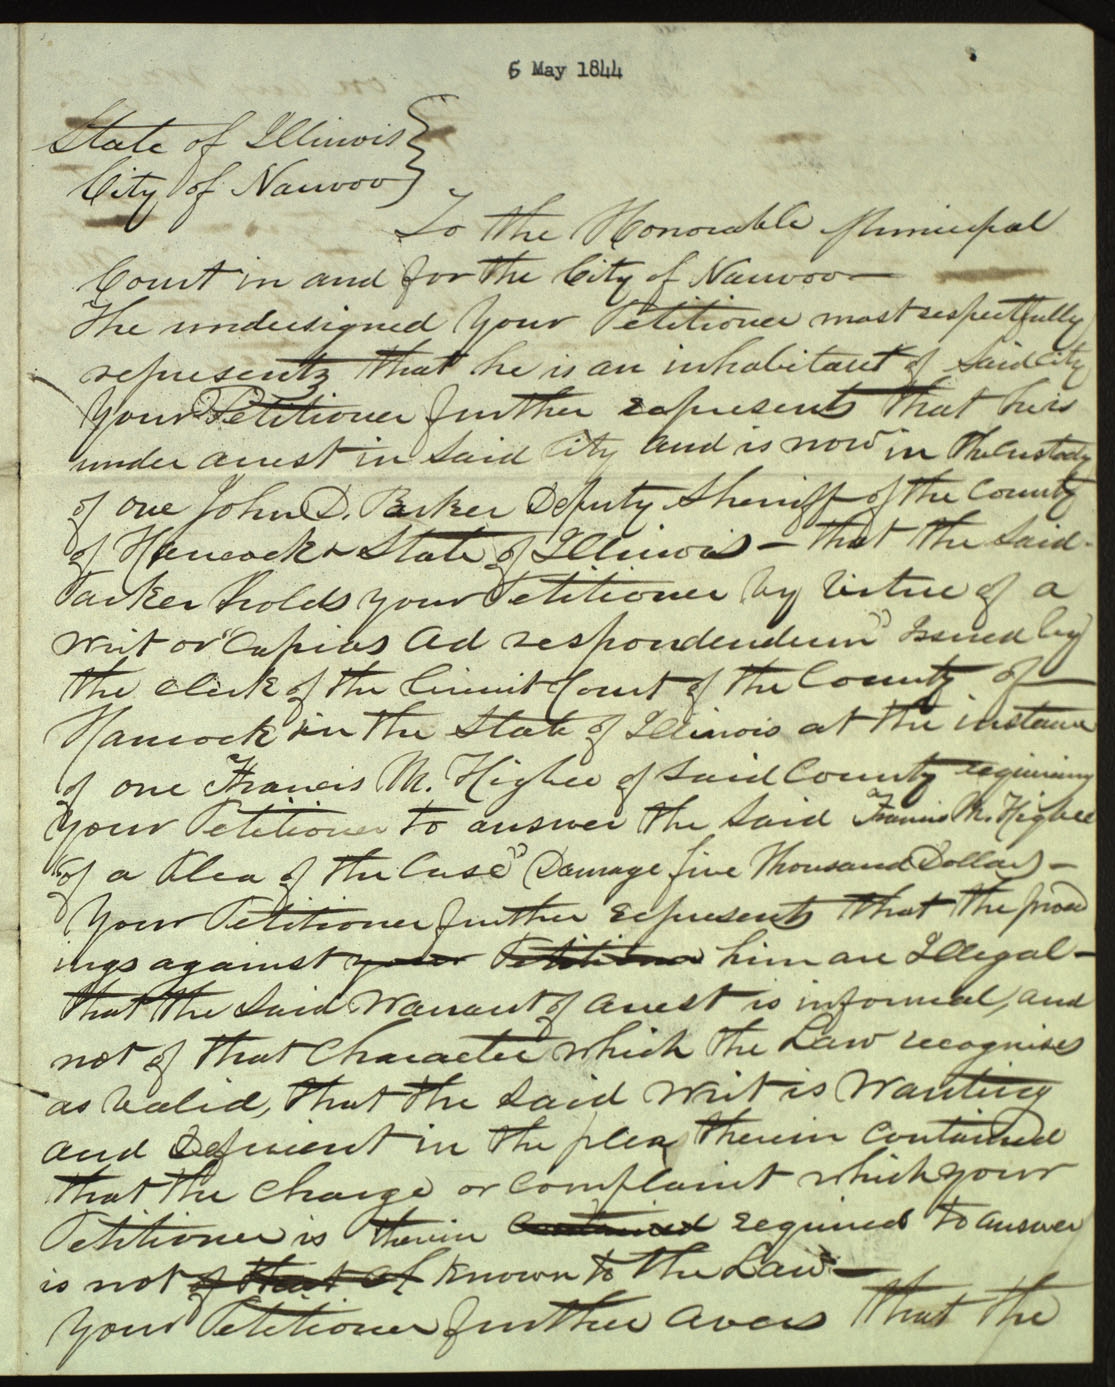 6 May 1844
State of Illinois }
City of Nauvoo }
To the Honorable Municipal
Court in and for the City of Nauvoo—
The undersigned Your Petitioner most respectfully
represents that he is an inhabitant of Said City
Your Petitioner further represents that he is
under arrest in Said City and is now in the Custody
of one John D. Parker Deputy Sheriff of the County
of Hancock & State of Illinois — that the Said
Parker holds your Petitioner by Virtue of a
writ or "Capias Ad respondendum" Issued by
the clerk of the Circuit Court of the County of —
Hancock in the State of Illinois at the instance
of one Francis M. Higbee of Said County requiring
Your Petitioner to answer the Said Francis M. Higbee
"of a Plea of the Case" Damage five Thousand Dollars —
Your Petitioner further represents that the proceed
ings against your Petitioner him are Illegal —
that the Said Warrant of Arrest is informal, and
not of that Character which the Law recognises
as valid, that the Said writ is Wanting
and Deficient in the plea therein Contained
that the Charge or Complaint which your
Petitioner is therein Contained required to answer
is not of that known to the Law —
Your Petitioner further avers that the